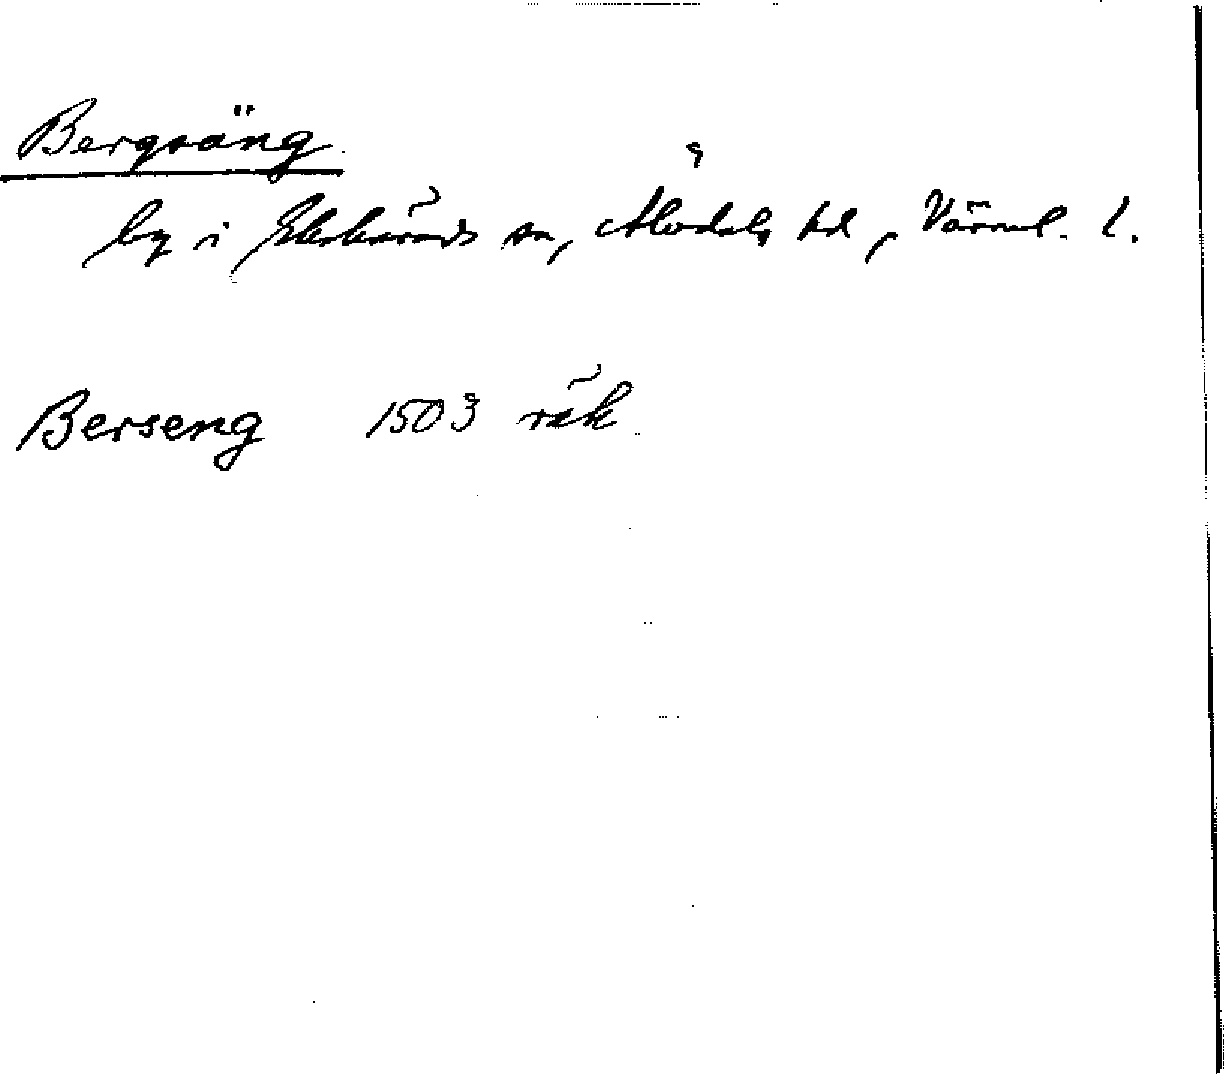 Bergsäng
by i Ekshärads sn, Älvdals hd, Värml. l.
Berseng 1503 räk